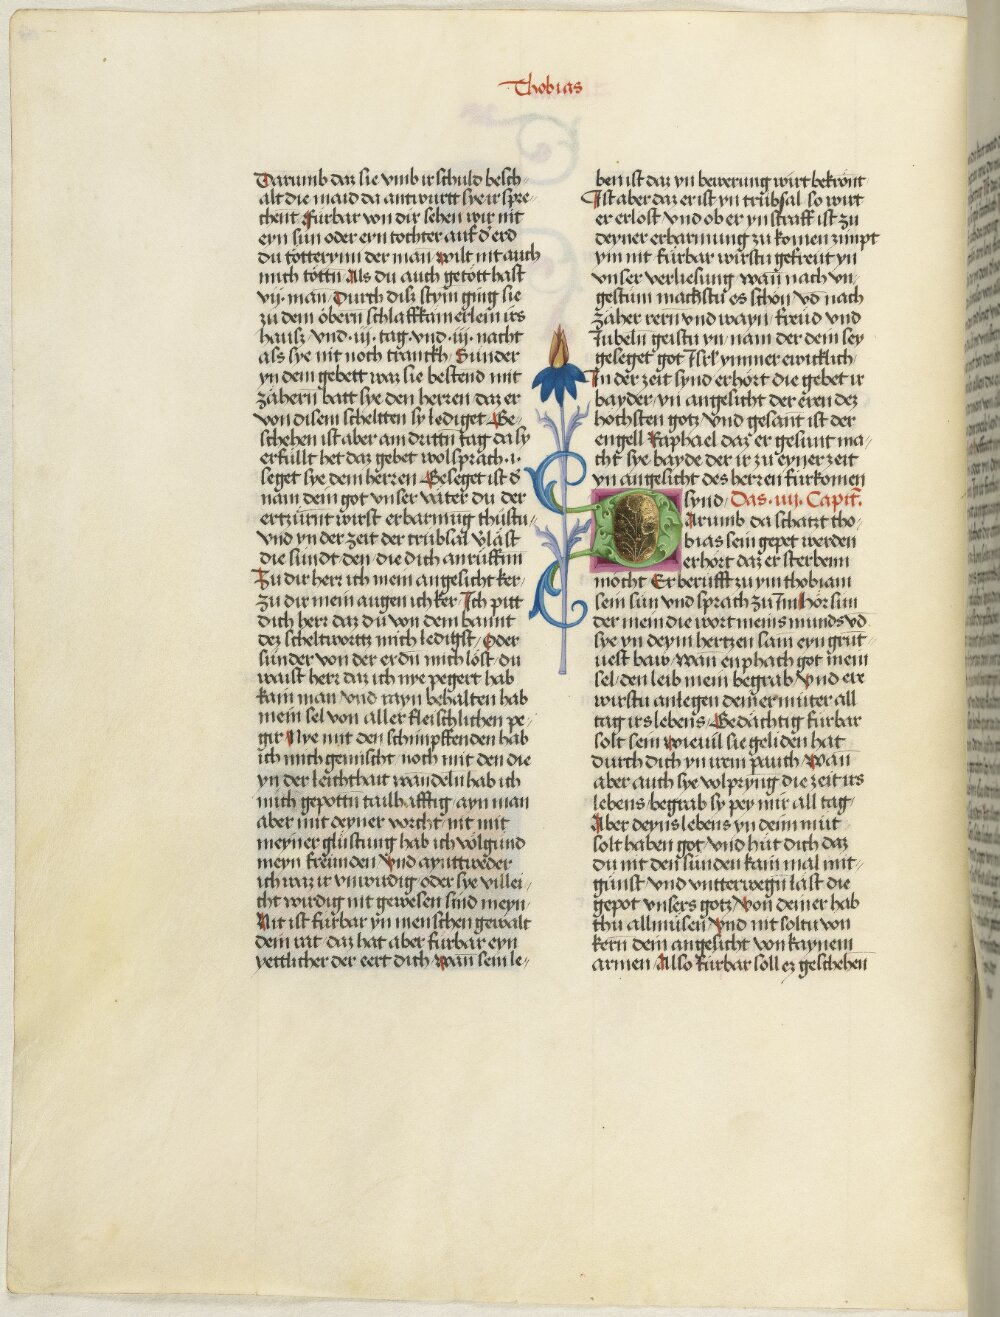 Thobias
Darumb daz sie vmb ir schuld besch-
alt die maid da antwurtt sye ir spre-
chent Fürbar von dir sehen wir nit
eyn sun oder eyn tochter auf d erd
du totterynn der man wilt nit auch
mich tottn Als du auch getott hast
vij. man Durch disz stym ging sie
zu dem obern schlaffkamerlein irs
hausz vnd .iij. tag vnd .iij. nacht
ass sye nit noch tranckh Sunder
yn dem gebett war sie bestend mit
zähern batt sye den herren daz er
von disem scheltten sy lediget Ge-
schehen ist aber am drittn tag da sy
erfüllt het daz gebet wolsprach .i.
seget sye dem herren Geseget ist d
nam dein got vnser väter du der
ertzürnt wirst erbarmug thustu
vnd yn der zeit der trübsal vläst
die sündt den die dich anrüffnn
Zu dir herr ich mein angesicht ker
zu dir mein augen ich ker Ich pitt
dich herr daz du von dem bannt
dez scheltwortts mich ledigst Oder
sunder von der erdn mich löst du
waist herr daz ich nye pegert hab
kain man vnd rayn behalten hab
mein sel von aller fleischlichen pe-
gir Nye mit den schimpffenden hab
ich mich gemischt noch mit den die
yn der leichthait wandeln hab ich
mich gepottn tailhafftig ayn man
aber mit deyner vorcht nit mit
meyner glustung hab ich volgund
meyn freunden Vnd ayntweder
ich waz ir vnwirdig oder sye villei-
cht wirdig nit gewesen sind meyn
Nit ist fürbar yn menschen gewalt
dein rat daz hat aber fürbar eyn
yettlicher der eert dich wan sein le-
ben ist daz yn bewerung wirt bekrönt
Ist aber daz er ist yn trübsal so wirt
er erlost vnd ob er yn straff ist zu
deyner erbarmung zu komen zimpt
ym nit fürbar wirstu gefreut yn
vnser verliesung wan nach vn
gestüm machstu es schon vd nach
zaher rern vnd wayn freud vnd
Jubeln geistu yn nam der dein sey
geseget got Israel ymmer ewicklich
In der zeit synd erhört die gebet ir
bayder yn angesicht der eren dez
hochsten gotz vnd gesant ist der
engell Raphael daz er gesunt ma-
cht sye bayde der ir zu eyner zeit
yn angesicht des herren fürkomen
synd Das .iiij. Capit.
Darumb da schätzt tho-
bias sein gepet werden
erhört daz er sterbenn
möcht Er berufft zu ym thobiam
sein sun vnd sprach zu Im hör sun
der mein die wort meins munds vd
sye yn deym hertzen sam eyn grut-
uest baw wan enphach got mein
sel den leib mein begrab vnd ere
wirstu anlegen deiner muter all
tag irs lebens Gedächtig fürbar
solt sein wieuil sie geliden hat
durch dich yn irem pauch wan
aber auch sye volpryng die zeit irs
lebens begrab sy pey mir all tag
Aber deyns lebens yn deim mut
solt haben got vnd hüt dich daz
du nit den sünden kain mal mit-
gunst vnd vntterwegn last die
gepot vnsers gotz von deiner hab
thu allmusen vnd nit soltu von
kern dein angesicht von kaynem
armen Allso fürbar soll ez geschehen